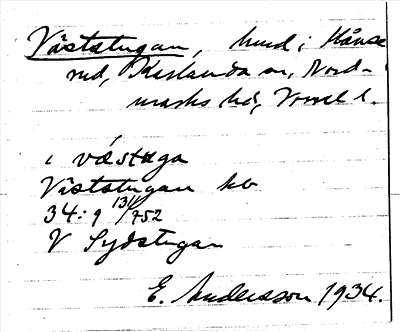 Väststugan, hmd i Hånse
rud, Karlanda sn, Nord-
marks hd, Vrml l.
i västuga
Väststugan kb
34: 9 131/752
V Sydstugan
E. Andersson 1934.